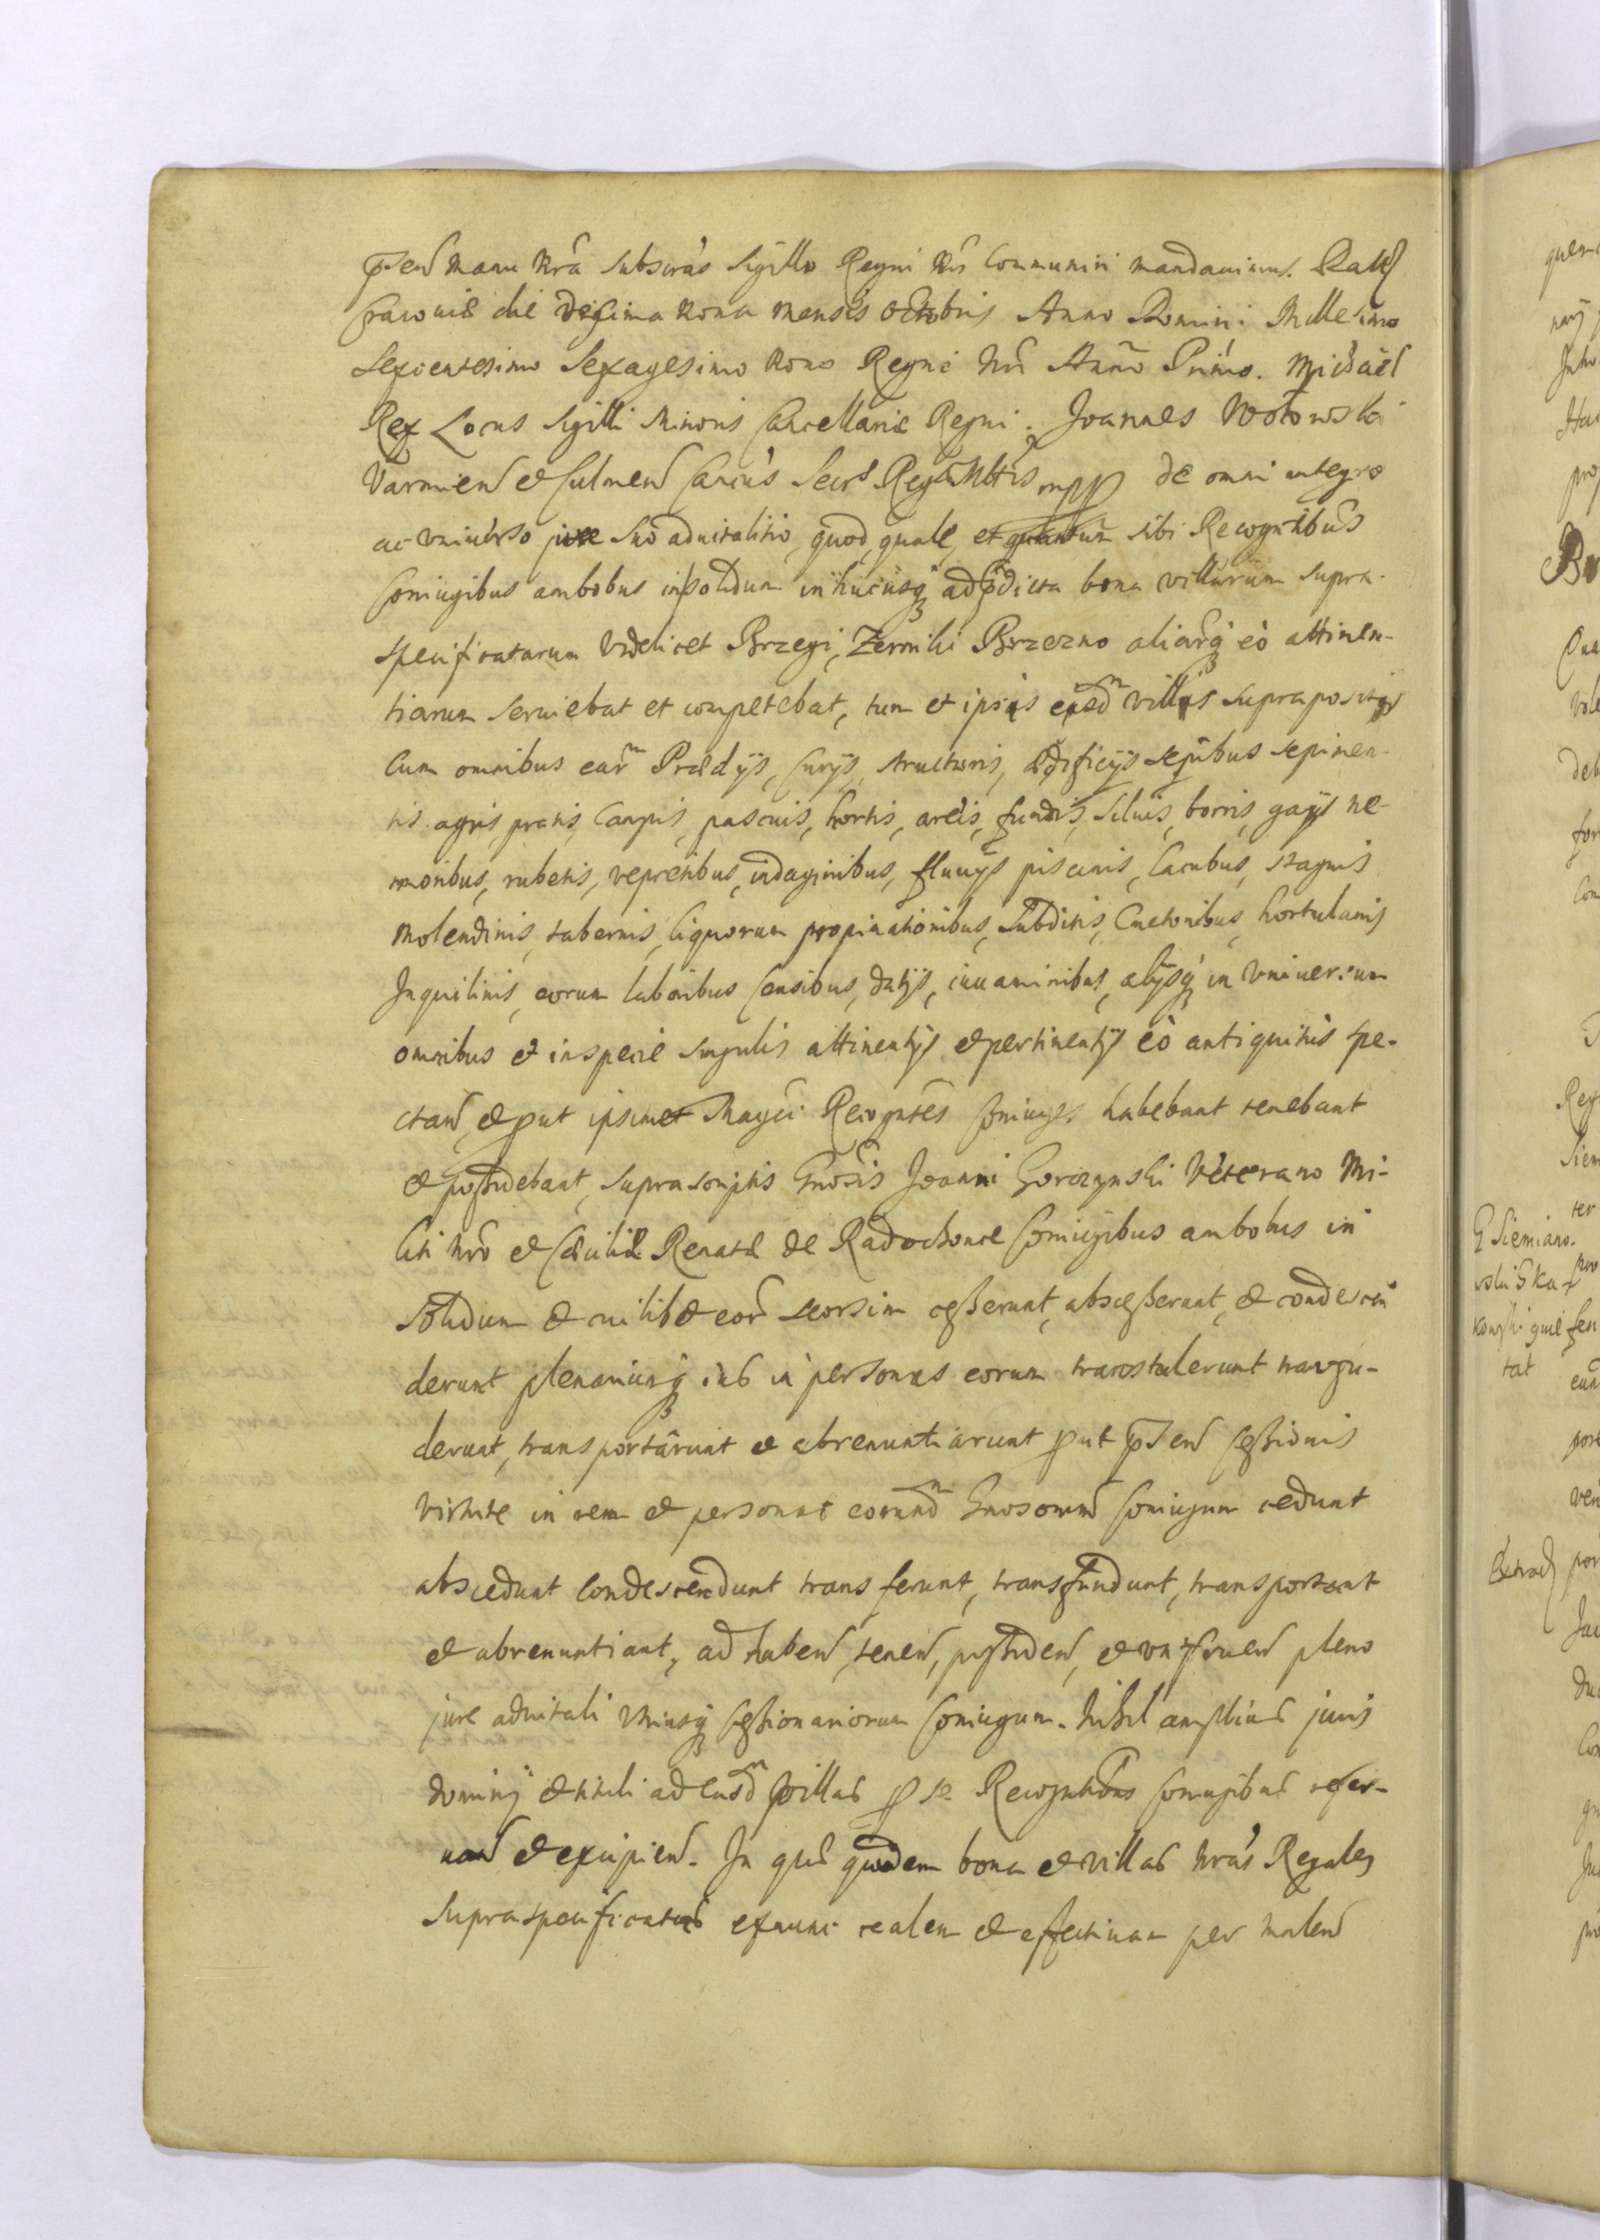 pñsen manu nrã subscrãs sigillo Regni nri communiri mandavimus. Datt
Cracoviæ die decima nona mensis octobris Anno Domini Millesimo
sexcentesimo sexagesimo nono Regni nri Anno Primo. Michäel
Rex Locus Sigilli Minoris Cancellariæ Regni. Joannes Wołowski
Varmien et Culmen Cancus Secrs Reg Mttis mpp de omni integro
ac universo jure suo advitalitio, quod, quale, et quantum sibi Recogntibus
Coniugibus ambobus insolidum in hucusq ad pdicta bona villarum supra-
specificatarum videlicet Brzegi, Zerniki Brzezno aliarq eò attinen-
tiarum serviebat et competebat, tum et ipsis eisdm villis suprapositis
Cum omnibus earm Prædijs, Curijs, structuris, ædificijs sepibus sepimen-
tis agris pratis, Campis, pascuis, hortis, areis, fundis, silvis, borris, gajis ne-
moribus, rubetis, vepretibus, indaginibus, fluvijs piscinis, lacubus, stagnis
Molendinis, tabernis, liquorum propinationibus, Subditis, Cmetonibus, hortulanis
Inquilinis, eorum laboribus Censibus, datijs, iuvaminibus, alijsq in universum
omnibus et inspecie singulis attinentijs et pertinentijs eò antiquitus spe-
ctan et put ipsimet Magci Recogntes Coniuges habebant tenebant
et possidebant, suprascriptis Gnosis Joanni Gorczynski Veterano Mi-
liti nro et Cæciliæ Renatæ de Radochonce Coniugibus ambobus in
solidum et cuilibet eor seorsim cesserunt, abscesserunt, et condescen
derunt plenariumq ius in personas eorum transtulerunt transfu-
derunt, transportarunt et abrenuntiarunt put pnsen Cessionis
virtute in rem et personas eorundm Gnosorum Coniugum cedunt
abscedunt condescendunt transferunt, transfundunt, transportant
et abrenuntiant, ad haben, tenen, possiden, et utifruen pleno
jure advitali utriusq Cessionariorum Coniugum. Nihil amplius juris
dominij et tituli ad easdm villas p se Recogntibus Coniugibus reser-
van et excipien. In quæ quidem bona et villas nrãs Regales
supraspecificatas exnunc realem et effectivam per